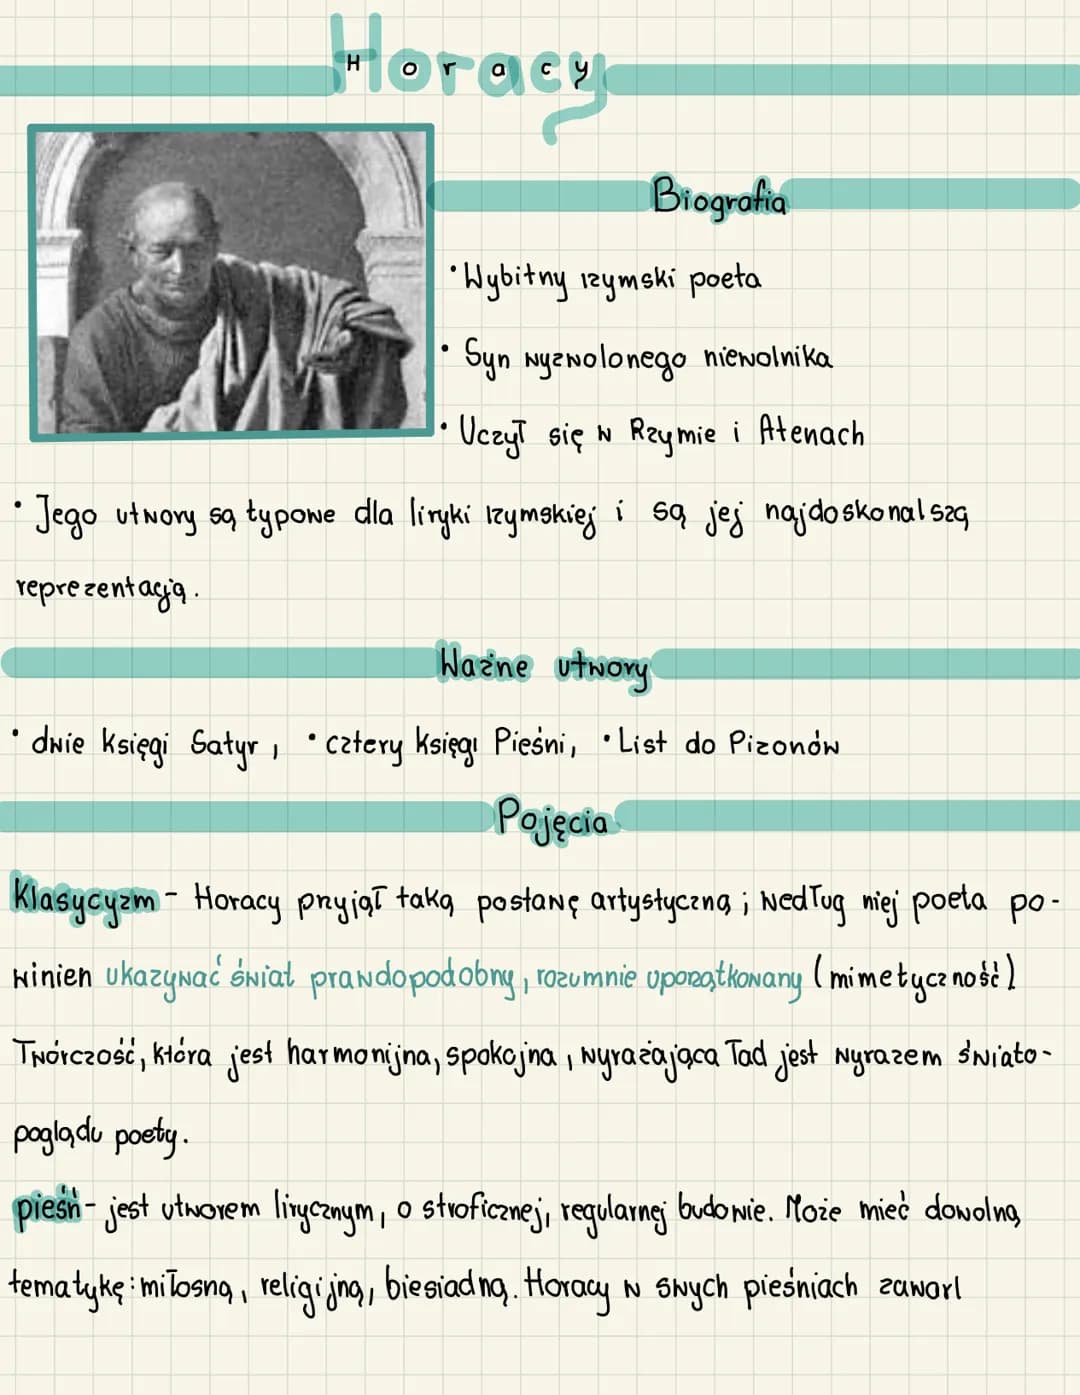 Horacy
Biografia
• Wybitny rzymski poeta
• Syn wyzwolonego niewolnika
• Uczył się w Rzymie i Atenach
• Jego utwory są typowe dla liryki rzymskiej i są jej najdoskonalszą
reprezentacją.
Ważne utwory
• dwie księgi Satyr, • cztery księgi Pieśni, • List do Pizonów
Pojęcia
Klasycyzm - Horacy przyjął taką postawę artystyczną; według niej poeta po-
winien ukazywać świat prawdopodobny, rozumnie uporzątkowany (mimetyczność)
Twórczość, która jest harmonijna, spokojna, wyrażająca ład jest wyrazem świato-
poglądu poety.
pieśń - jest utworem lirycznym, o stroficznej, regularnej budowie. Może mieć dowolną
tematykę: miłosną, religijną, biesiadną. Horacy w swych pieśniach zawarl